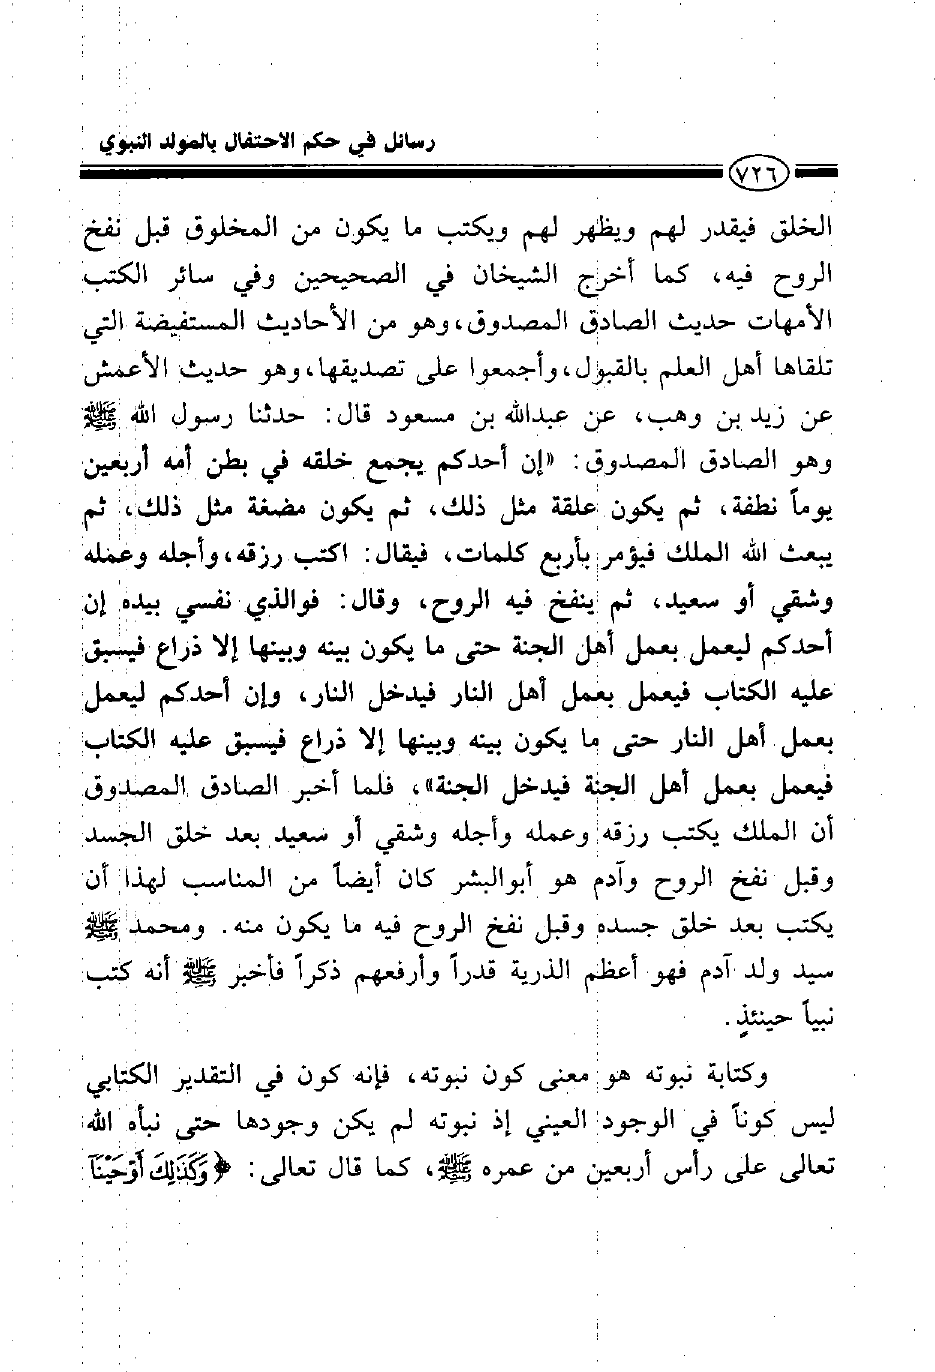 رسائل في حكم الاحتفال بالمولد النبوي
٧٢٦
الخلق فيقدر لهم ويظهر لهم ويكتب ما يكون من المخلوق قبل نفخ
الروح فيه، كما أخرج الشيخان في الصحيحين وفي سائر الكتب
الأمهات حديث الصادق المصدوق، وهو من الأحاديث المستفيضة التي
تلقاها أهل العلم بالقبول، وأجمعوا على تصديقها، وهو حديث الأعمش
عن زيد بن وهب، عن عبدالله بن مسعود قال: حدثنا رسول الله ﷺ
وهو الصادق المصدوق: «إن أحدكم يجمع خلقه في بطن أمه أربعين
يوماً نطفة، ثم يكون علقة مثل ذلك، ثم يكون مضغة مثل ذلك، ثم
يبعث الله الملك فيؤمر بأربع كلمات، فيقال: اكتب رزقه، وأجله وعمله
وشقي أو سعيد، ثم ينفخ فيه الروح، وقال: فوالذي نفسي بيده إن
أحدكم ليعمل بعمل أهل الجنة حتى ما يكون بينه وبينها إلا ذراع فيسبق
عليه الكتاب فيعمل بعمل أهل النار فيدخل النار، وإن أحدكم ليعمل
بعمل أهل النار حتى ما يكون بينه وبينها إلا ذراع فيسبق عليه الكتاب
فيعمل بعمل أهل الجنة فيدخل الجنة»، فلما أخبر الصادق المصدوق
أن الملك يكتب رزقه وعمله وأجله وشقي أو سعيد بعد خلق الجسد
وقبل نفخ الروح وآدم هو أبوالبشر كان أيضاً من المناسب لهذا أن
يكتب بعد خلق جسده وقبل نفخ الروح فيه ما يكون منه. ومحمد ﷺ
سيد ولد آدم فهو أعظم الذرية قدراً وأرفعهم ذكراً فأخبر ﷺ أنه كتب
نبياً حينئذٍ.
وكتابة نبوته هو معنى كون نبوته، فإنه كون في التقدير الكتابي
ليس كوناً في الوجود العيني إذ نبوته لم يكن وجودها حتى نبأه الله
تعالى على رأس أربعين من عمره ﷺ، كما قال تعالى: ﴿وَكَذَٰلِكَ أَوْحَيْنَآ